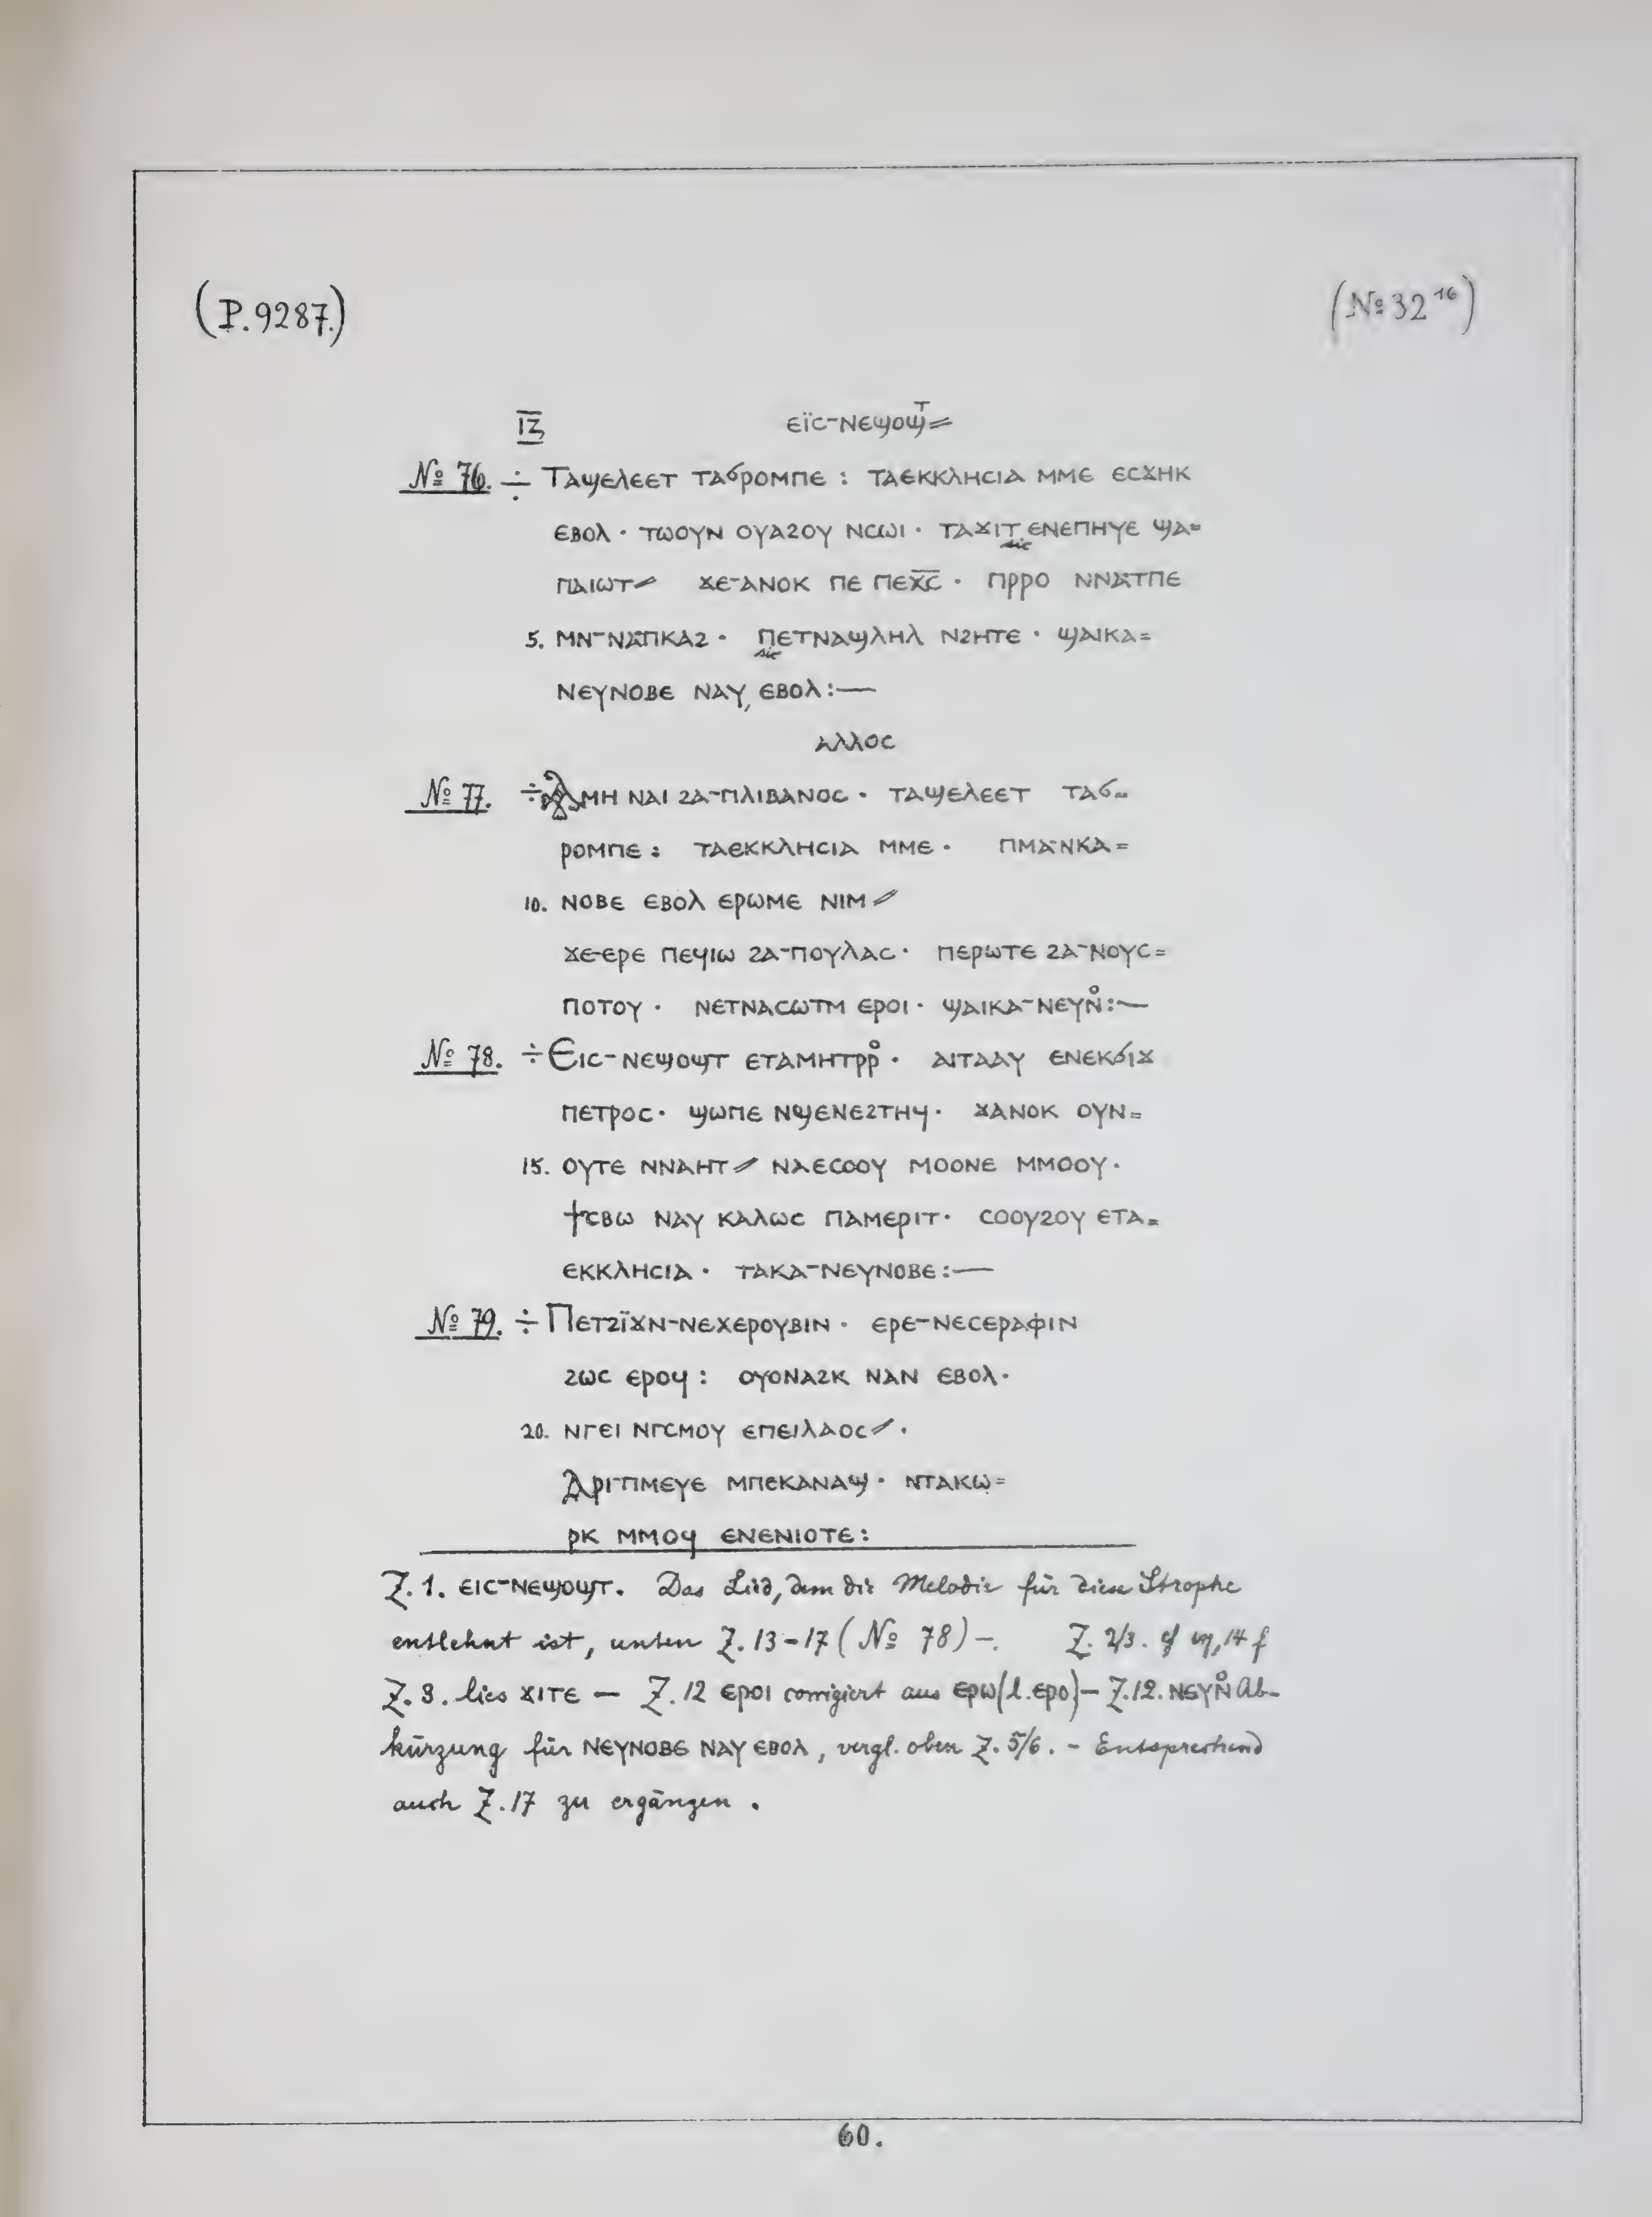 (P.9287.)
(№ 32¹⁶)
ⲓⲍ̅ ⲉⲓ̈ⲥ-ⲛⲉϣⲟϣⲧ⸗
№ 76. ÷ Ⲧⲁϣⲉⲗⲉⲉⲧ ⲧⲁϭⲣⲟⲙⲡⲉ : ⲧⲁⲉⲕⲕⲗⲏⲥⲓⲁ ⲙⲙⲉ ⲉⲥϫⲏⲕ
ⲉⲃⲟⲗ · ⲧⲱⲟⲩⲛ ⲟⲩⲁϩⲟⲩ ⲛⲥⲱⲓ · ⲧⲁϫⲓⲧ ⲉⲛⲉⲡⲏⲩⲉ ϣⲁ⸗
sic
ⲡⲁⲓⲱⲧ⸗ ϫⲉ-ⲁⲛⲟⲕ ⲡⲉ ⲡⲉⲭ̅ⲥ̅ · ⲡⲣⲣⲟ ⲛⲛⲁⲧⲡⲉ
5. ⲙⲛ-ⲛⲁⲡⲕⲁϩ · ⲡⲉⲧⲛⲁϣⲗⲏⲗ ⲛϩⲏⲧⲉ · ϣⲁⲓⲕⲁ⸗
sic
ⲛⲉⲩⲛⲟⲃⲉ ⲛⲁⲩ, ⲉⲃⲟⲗ :—
ⲁⲗⲗⲟⲥ
№ 77. ÷ Ⲁⲙⲏ ⲛⲁⲓ ϩⲁ-ⲡⲗⲓⲃⲁⲛⲟⲥ · ⲧⲁϣⲉⲗⲉⲉⲧ ⲧⲁϭ⸗
ⲣⲟⲙⲡⲉ : ⲧⲁⲉⲕⲕⲗⲏⲥⲓⲁ ⲙⲙⲉ · ⲡⲙⲁⲛⲕⲁ⸗
10. ⲛⲟⲃⲉ ⲉⲃⲟⲗ ⲉⲣⲱⲙⲉ ⲛⲓⲙ⸗
ϫⲉ-ⲉⲣⲉ ⲡⲉϥⲓⲱ ϩⲁ-ⲡⲟⲩⲗⲁⲥ · ⲡⲉⲣⲱⲧⲉ ϩⲁ-ⲛⲟⲩⲥ⸗
ⲡⲟⲧⲟⲩ · ⲛⲉⲧⲛⲁⲥⲱⲧⲙ ⲉⲣⲟⲓ · ϣⲁⲓⲕⲁ-ⲛⲉⲩⲛ̊ :—
№ 78. ÷ Ⲉⲓⲥ-ⲛⲉϣⲟϣⲧ ⲉⲧⲁⲙⲏⲧⲣⲣ̊ · ⲁⲓⲧⲁⲁⲩ ⲉⲛⲉⲕϭⲓϫ
ⲡⲉⲧⲣⲟⲥ · ϣⲱⲡⲉ ⲛϣⲉⲛⲉϩⲧⲏϥ · ϫⲁⲛⲟⲕ ⲟⲩⲛ⸗
15. ⲟⲩⲧⲉ ⲛⲛⲁⲏⲧ⸗ ⲛⲁⲉⲥⲟⲟⲩ ⲙⲟⲟⲛⲉ ⲙⲙⲟⲟⲩ ·
ϯⲥⲃⲱ ⲛⲁⲩ ⲕⲁⲗⲱⲥ ⲡⲁⲙⲉⲣⲓⲧ · ⲥⲟⲟⲩϩⲟⲩ ⲉⲧⲁ⸗
ⲉⲕⲕⲗⲏⲥⲓⲁ · ⲧⲁⲕⲁ-ⲛⲉⲩⲛⲟⲃⲉ :—
№ 79. ÷ Ⲡⲉⲧϩⲓ̈ϫⲛ-ⲛⲉⲭⲉⲣⲟⲩⲃⲓⲛ · ⲉⲣⲉ-ⲛⲉⲥⲉⲣⲁⲫⲓⲛ
ϩⲱⲥ ⲉⲣⲟϥ : ⲟⲩⲟⲛⲁϩⲕ ⲛⲁⲛ ⲉⲃⲟⲗ ·
20. ⲛⲅⲉⲓ ⲛⲅⲥⲙⲟⲩ ⲉⲡⲉⲓⲗⲁⲟⲥ⸗ ·
Ⲁⲣⲓ-ⲡⲙⲉⲩⲉ ⲙⲡⲉⲕⲁⲛⲁϣ · ⲛⲧⲁⲕⲱ⸗
ⲣⲕ ⲙⲙⲟϥ ⲉⲛⲉⲛⲓⲟⲧⲉ :
Z. 1. ⲉⲓⲥ-ⲛⲉϣⲟϣⲧ. Das Lied, dem die Melodie für diese Strophe
entlehnt ist, unten Z. 13-17 (№ 78) –. Z. 2/3. cf 14 f
Z. 3. lies ϫⲓⲧⲉ — Z. 12 ⲉⲣⲟⲓ corrigiert aus ⲉⲣⲱ (l. ⲉⲣⲟ) – Z. 12. ⲛⲉⲩⲛ̊ Ab-
kürzung für ⲛⲉⲩⲛⲟⲃⲉ ⲛⲁⲩ ⲉⲃⲟⲗ, vergl. oben Z. 5/6. – Entsprechend
auch Z. 17 zu ergänzen.
60.